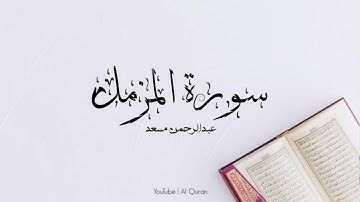 سورة المزمل
عبدالرحمن مسعد
YouTube | Al Quran